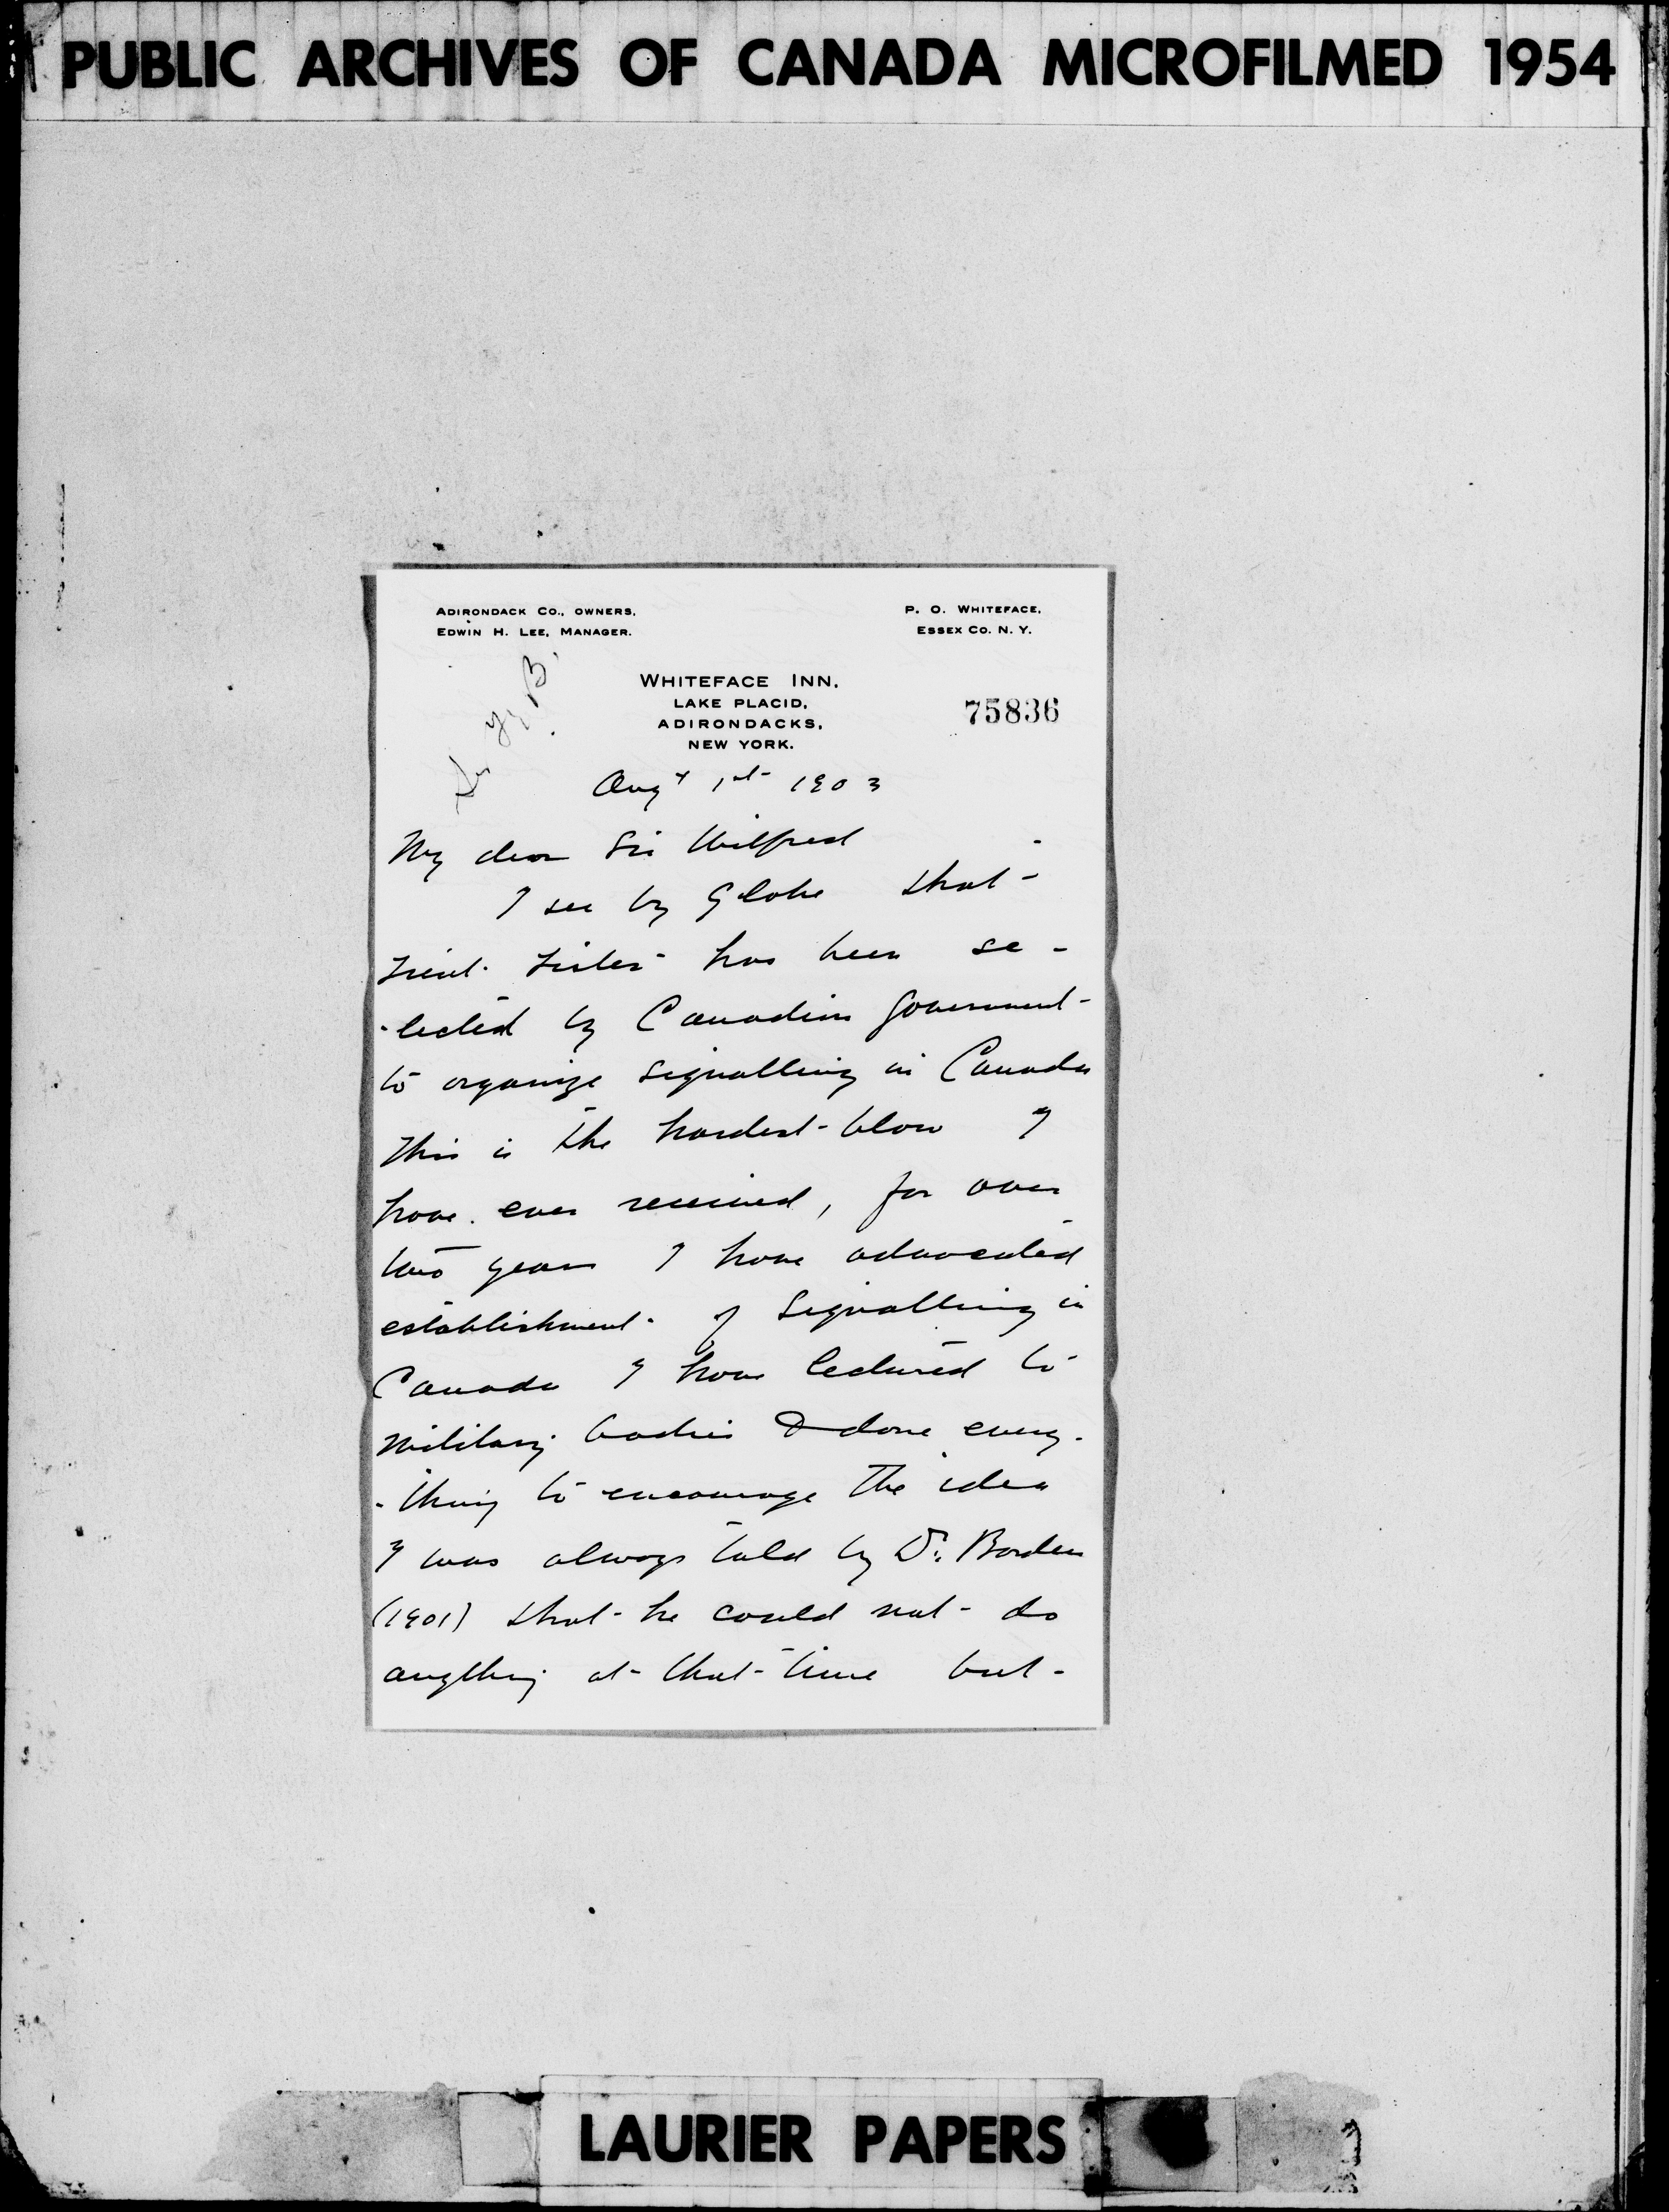 PUBLIC ARCHIVES OF CANADA MICROFILMED 1954
ADIRONDACK CO., OWNERS,
EDWIN H. LEE, MANAGER.
P. O. WHITEFACE,
ESSEX CO. N. Y.
WHITEFACE INN,
LAKE PLACID,
ADIRONDACKS,
NEW YORK.
75836
Augt 1st 1903
My dear Sir Wilfred
I see by Globe that
Lieut. has been se-
-lected by Canadian Government
to organize Signalling in Canada
This is the hardest blow I
have ever received, for over
two years I have advocated
establishment of Signalling in
Canada I have lectured to
Military bodies & done every-
-thing to encourage the idea
I was always told by Dr. Borden
(1901) that he could not do
anything at that time but
LAURIER PAPERS